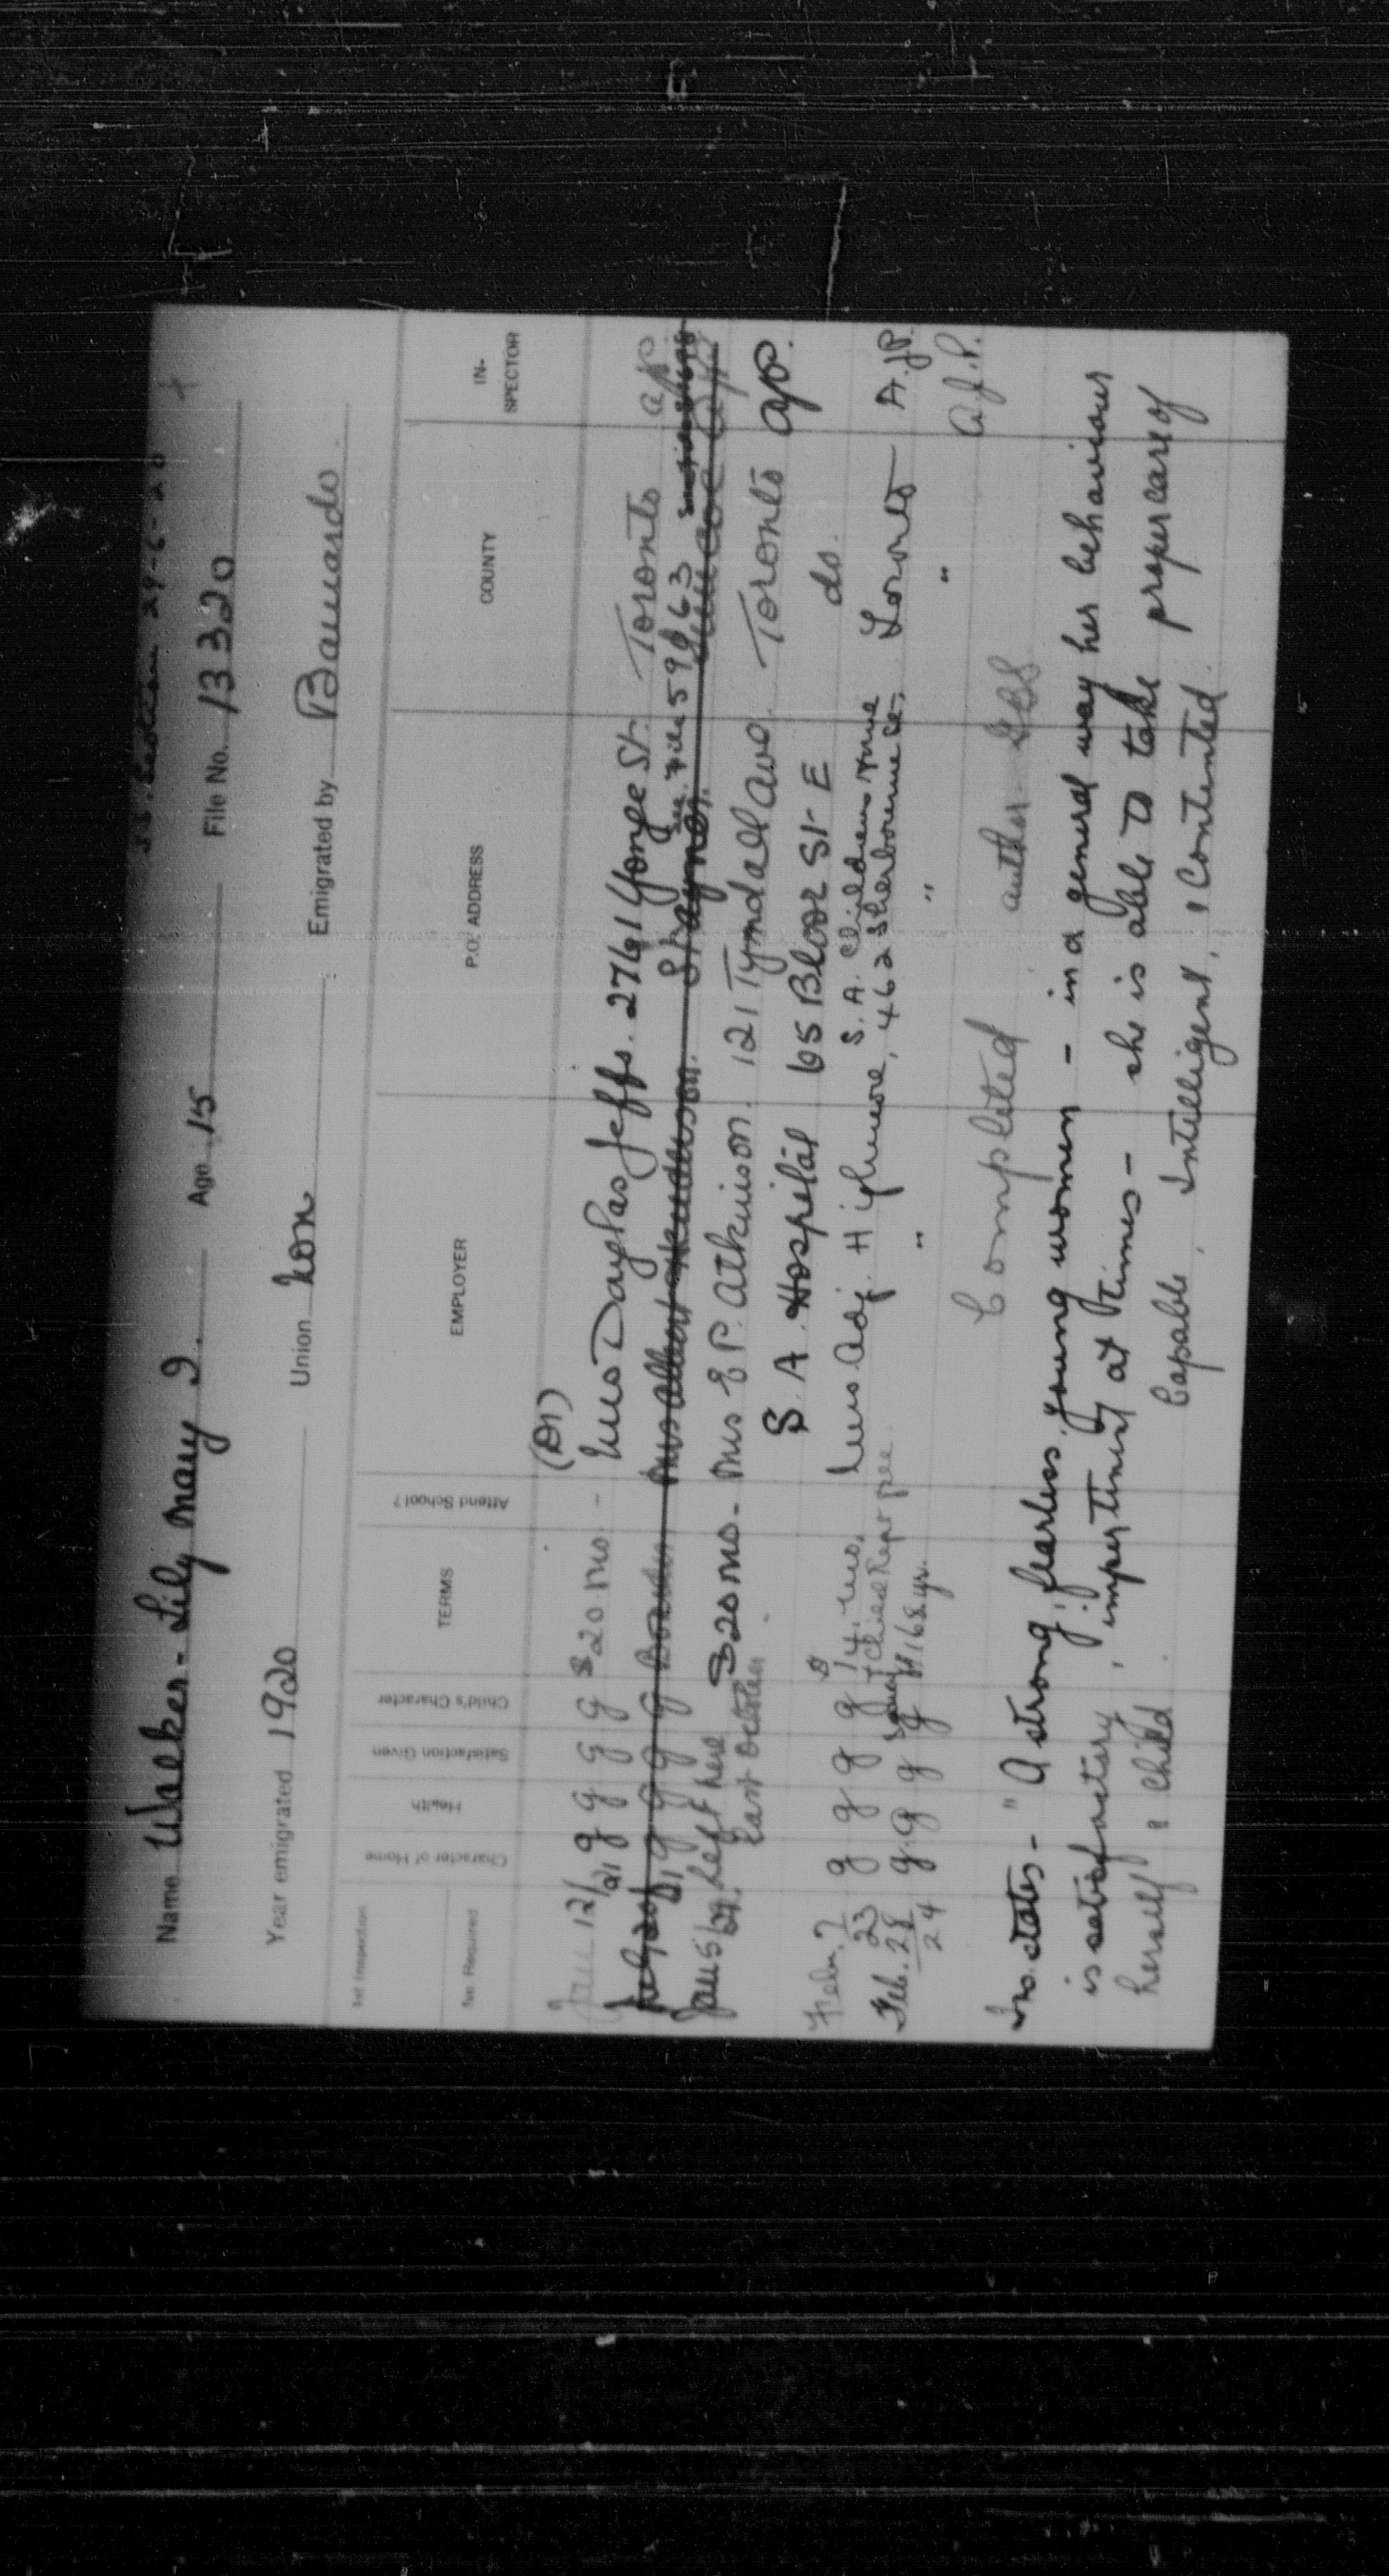 SS. Scotian 29-6-20
Name Walker - Lily May I. Age 15 File No. 13320
Year emigrated 1920 Union Non Emigrated by Barnardo
1st Inspection Character of Home Health Satisfaction Given Child's Character TERMS Attend School? EMPLOYER P.O. ADDRESS COUNTY IN-SPECTOR
No. Required
(D1)
Jan 12/21 g g g g $20 mo. - Mrs Douglas Jeffs. 2761 Yonge St. Toronto AJP
see file 59063
July 20/21 g g g g Boarder Mrs Albert Stayner. Simcoe AJP
Jan 5/22. Left here last October $20 mo. - Mrs E P. Atkinson. 121 Tyndall Ave. Toronto AJP.
S. A. Hospital 65 Bloor St E do.
Feb. 7/23 g g g g $14. mo. Mrs Adj. Highmore, S. A. Childrens Home 462 Sherbourne St. Toronto A.JP.
& Child kept free.
Feb. 28/24 g. g g g $168 yr. " " " A.J.P.
Completed author
Ins. states - " A strong, fearless, young women - in a general way her behaviour
is satisfactory, impertinent at times - she is able to take proper care of
herself & child. Capable, Intelligent, & Contented.